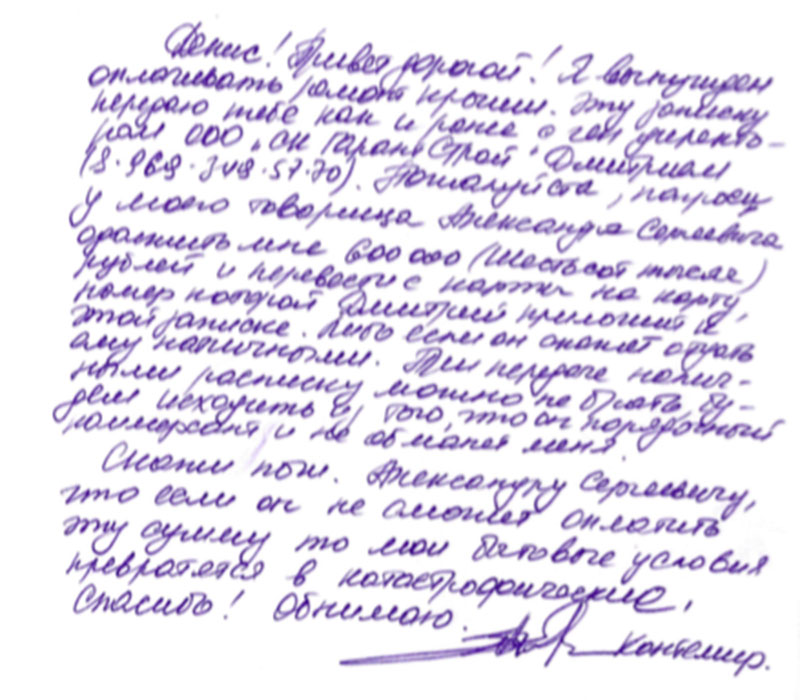 Денис! Привет дорогой! Я вынужден
оплачивать ремонт крыши. Эту записку
передаю тебе как и ранее с ген директо-
ром ООО "СК ГарантСтрой" Дмитрием
(8.969.348.57.70). Пожалуйста, попроси
у моего товарища Александра Сергеевича
одолжить мне 600 000 (Шестьсот тысяч)
рублей и перевести с карты на карту,
номер которой Дмитрий приложит к
этой записке. Либо если он сможет отдать
ему наличными. При передаче налич-
ными расписку можно не брать, бу-
дем исходить из того, что он порядочный
коммерсант и не обманет меня.
Скажи пож. Александру Сергеевичу,
что если он не сможет оплатить
эту сумму то мои бытовые условия
превратятся в катастрофические,
Спасибо! Обнимаю.
Кантемир.